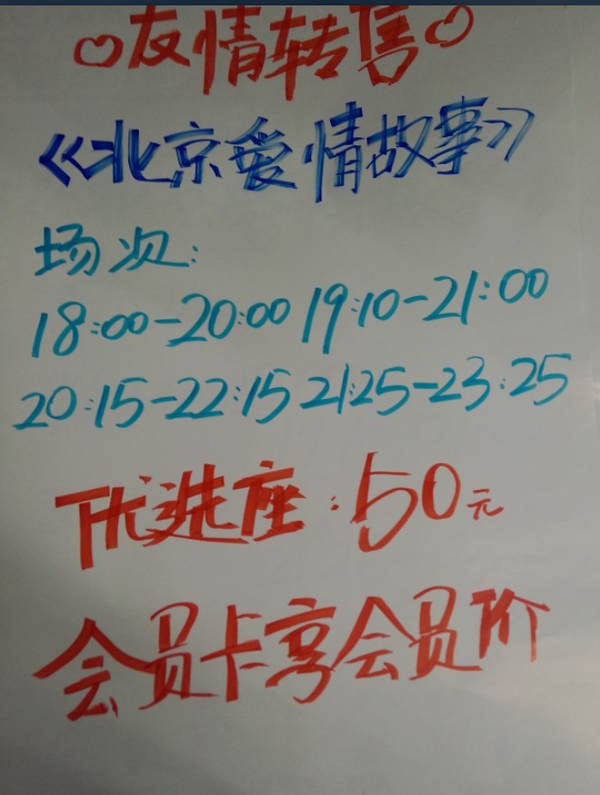 ♡友情转售♡
《北京爱情故事》
场次:
18:00-20:00 19:10-21:00
20:15-22:15 21:25-23:25
优选座:50元
会员卡享会员价